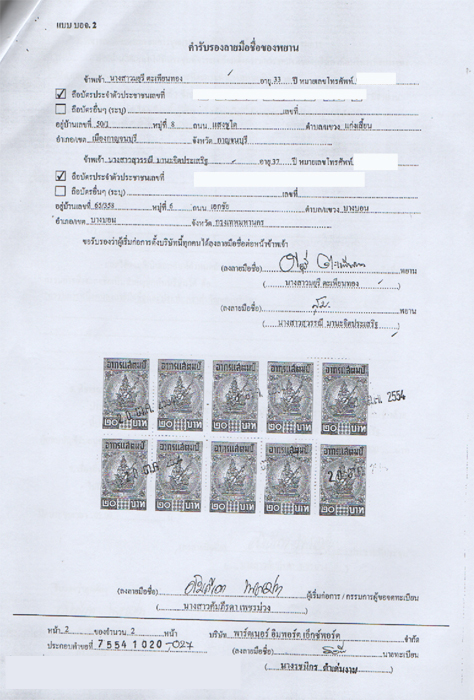 แบบ บอจ. 2
คำรับรองลายมือชื่อของพยาน
ข้าพเจ้า นางสาวมยุรี ตะเพียนทอง อายุ 33 ปี หมายเลขโทรศัพท์
ถือบัตรประจำตัวประชาชนเลขที่
ถือบัตรอื่นๆ (ระบุ) เลขที่
อยู่บ้านเลขที่ 50/1 หมู่ที่ 8 ถนน แสงชูโต ตำบล/แขวง แก่งเสี้ยน
อำเภอ/เขต เมืองกาญจนบุรี จังหวัด กาญจนบุรี
ข้าพเจ้า นางสาวสุวรรณี มานะจิตประเสริฐ อายุ 37 ปี หมายเลขโทรศัพท์
ถือบัตรประจำตัวประชาชนเลขที่
ถือบัตรอื่นๆ (ระบุ) เลขที่
อยู่บ้านเลขที่ 65/358 หมู่ที่ 6 ถนน เอกชัย ตำบล/แขวง บางบอน
อำเภอ/เขต บางบอน จังหวัด กรุงเทพมหานคร
ขอรับรองว่าผู้เริ่มก่อการตั้งบริษัทนี้ทุกคนได้ลงลายมือชื่อต่อหน้าข้าพเจ้า
(ลงลายมือชื่อ) พยาน
( นางสาวมยุรี ตะเพียนทอง )
(ลงลายมือชื่อ) พยาน
( นางสาวสุวรรณี มานะจิตประเสริฐ )
อากรแสตมป์ อากรแสตมป์ อากรแสตมป์ อากรแสตมป์ อากรแสตมป์
2554
๒๐ บาท ๒๐ บาท ๒๐ บาท ๒๐ บาท ๒๐ บาท
อากรแสตมป์ อากรแสตมป์ อากรแสตมป์ อากรแสตมป์ อากรแสตมป์
๒๐ บาท ๒๐ บาท ๒๐ บาท ๒๐ บาท ๒๐ บาท
(ลงลายมือชื่อ) ผู้เริ่มก่อการ / กรรมการผู้ขอจดทะเบียน
( นางสาวคัมภีรดา เพชรม่วง )
หน้า 2 ของจำนวน 2 หน้า บริษัท พาร์ตเนอร์ อิมพอร์ต เอ็กซ์พอร์ต จำกัด
ประกอบคำขอที่ 7 5 5 4 1 0 2 0 -027 (ลงลายมือชื่อ) นายทะเบียน